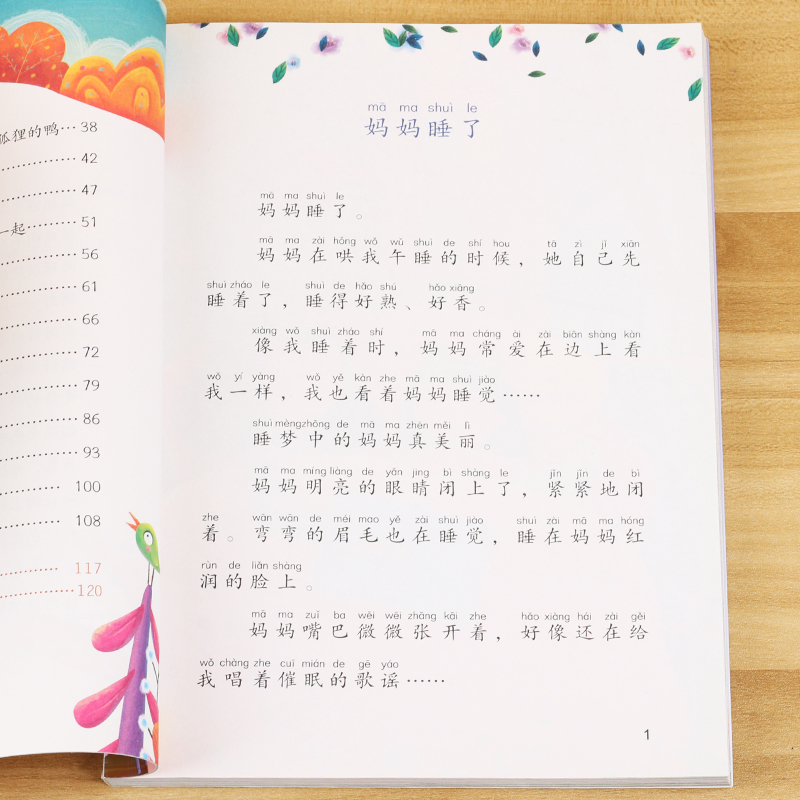 狐狸的鸭…38
42
47
一起……51
56
61
66
72
79
86
93
100
108
117
120
mā ma shuì le
妈妈睡了
mā ma shuì le
妈妈睡了。
mā ma zài hǒng wǒ wǔ shuì de shí hou tā zì jǐ xiān
妈妈在哄我午睡的时候，她自己先
shuì zháo le shuì de hǎo shú hǎo xiāng
睡着了，睡得好熟、好香。
xiàng wǒ shuì zháo shí mā ma cháng ài zài biān shàng kàn
像我睡着时，妈妈常爱在边上看
wǒ yí yàng wǒ yě kàn zhe mā ma shuì jiào
我一样，我也看着妈妈睡觉……
shuì mèng zhōng de mā ma zhēn měi lì
睡梦中的妈妈真美丽。
mā ma míng liàng de yǎn jing bì shàng le jǐn jǐn de bì
妈妈明亮的眼睛闭上了，紧紧地闭
zhe wān wān de méi mao yě zài shuì jiào shuì zài mā ma hóng
着。弯弯的眉毛也在睡觉，睡在妈妈红
rùn de liǎn shàng
润的脸上。
mā ma zuǐ ba wēi wēi zhāng kāi zhe hǎo xiàng hái zài gěi
妈妈嘴巴微微张开着，好像还在给
wǒ chàng zhe cuī mián de gē yáo
我唱着催眠的歌谣……
1